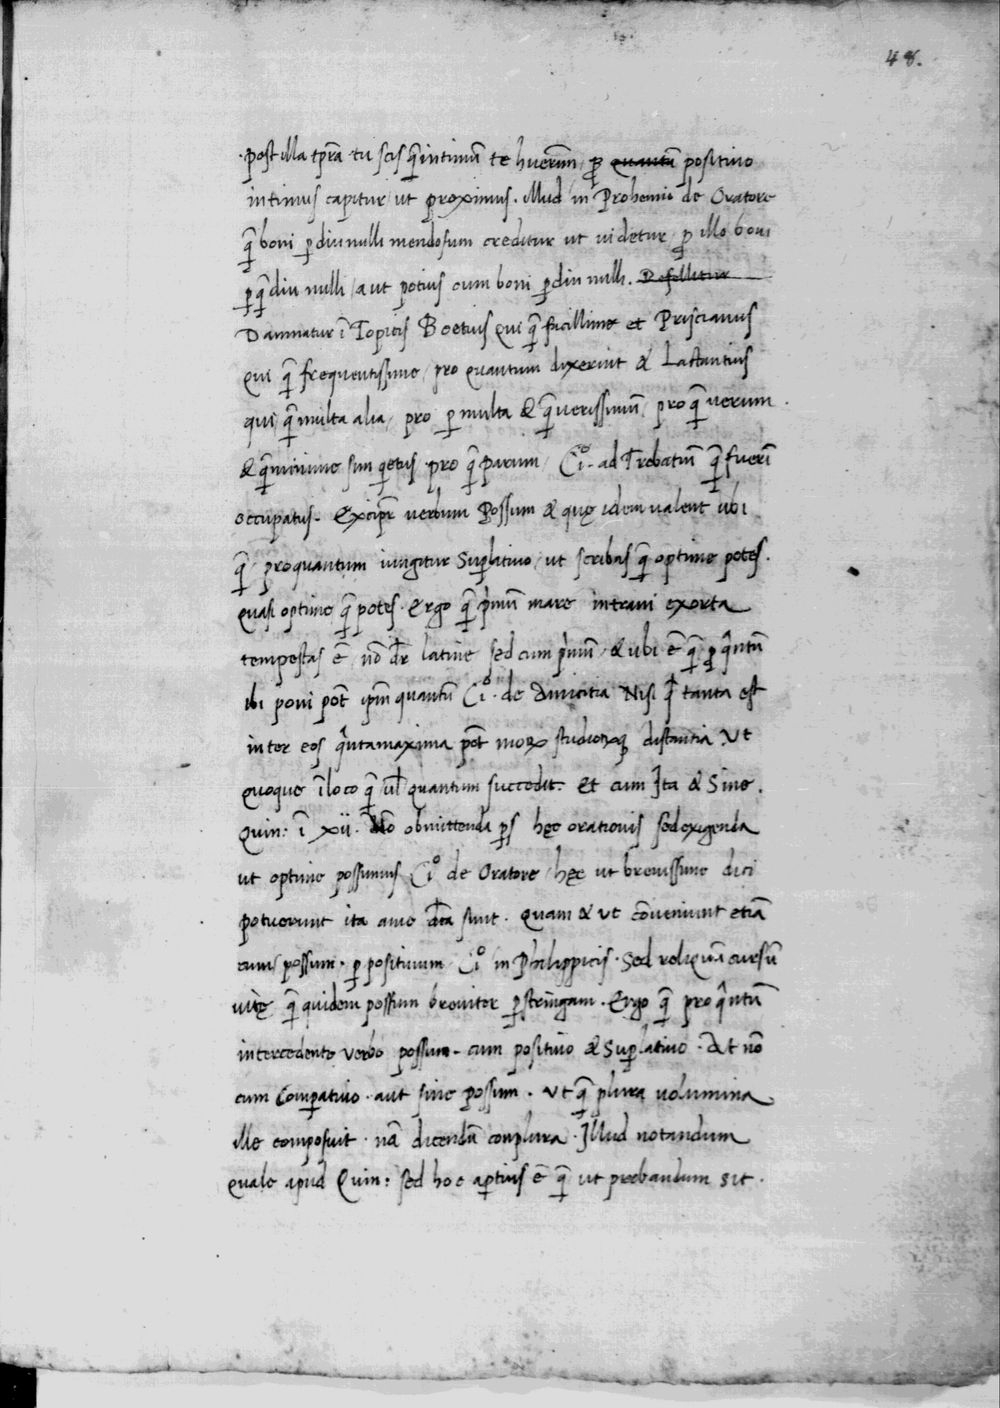 48.
Post illa tp̄ra tu scis q̄ intimū te huerim, p̄ quantū positiuo
intimus capitur, ut proximus. Illud in Prohemio de Oratore
q̄ boni p diu nulli mendosum creditur ut uidetur, p̄ illo boni
p q̄ diu nulli, aut potius cum boni p diu nulli. Refellitur
Damnatur ī Topicis Boetius qui q̄ facillime et Priscianus
qui q̄ frequentissime, pro quantum dixerint & Lactantius
qui, q̄ multa alia, pro p multa & q̄ uerissimū, pro q̄ uerum.
& q̄ minime sum quetus pro q̄ parum, Ci⁰. ad Trebatiū q̄ fuerī
occupatus. Excipr̄ uerbum Possum & quę idem ualent ubi
q̄, proquantum iungitur Suplatiuo, ut scribas q̄ optime potes.
quasi optime q̄ potes. Ergo q̄ p̄mū mare intraui exorta
tempestas ē, nō dr̄ latine sed cum p̄mū, & ubi ē q̄ p̄ q̄ntū
ibi poni pōt ipm̄ quantū Ci⁰. de Amicitia Nisi q̄ tanta est
inter eos q̄nta maxima pōt moꝝ studioꝝq; distantia. Ut
quoque ī loco q̄ ul̄ quantum succedit. Et cum Ita & Sine.
Quin: ī xij. Nō obmittenda ps̄ hęc orationis sed exigenda
ut optime possumus Ci⁰ de Oratore, hęc ut breuissime dici
potuerunt ita a me dc̄ta sunt. Quam & ut cōueniunt etiā
cum possum. p positiuum Ci⁰ in Philippicis. Sed reliquū cursū
uitę q̄ quidem possum breuiter pstringam. Ergo q̄ pro q̄ntū
intercedente uerbo possum. cum positiuo & Suplatiuo. At nō
cum Compatiuo. aut sine possum. Ut q̄ plura uolumina
ille composuit. nā dicendū conplura. Illud notandum
quale apud Quin: sed hoc aptius ē q̄ ut probandum sit.